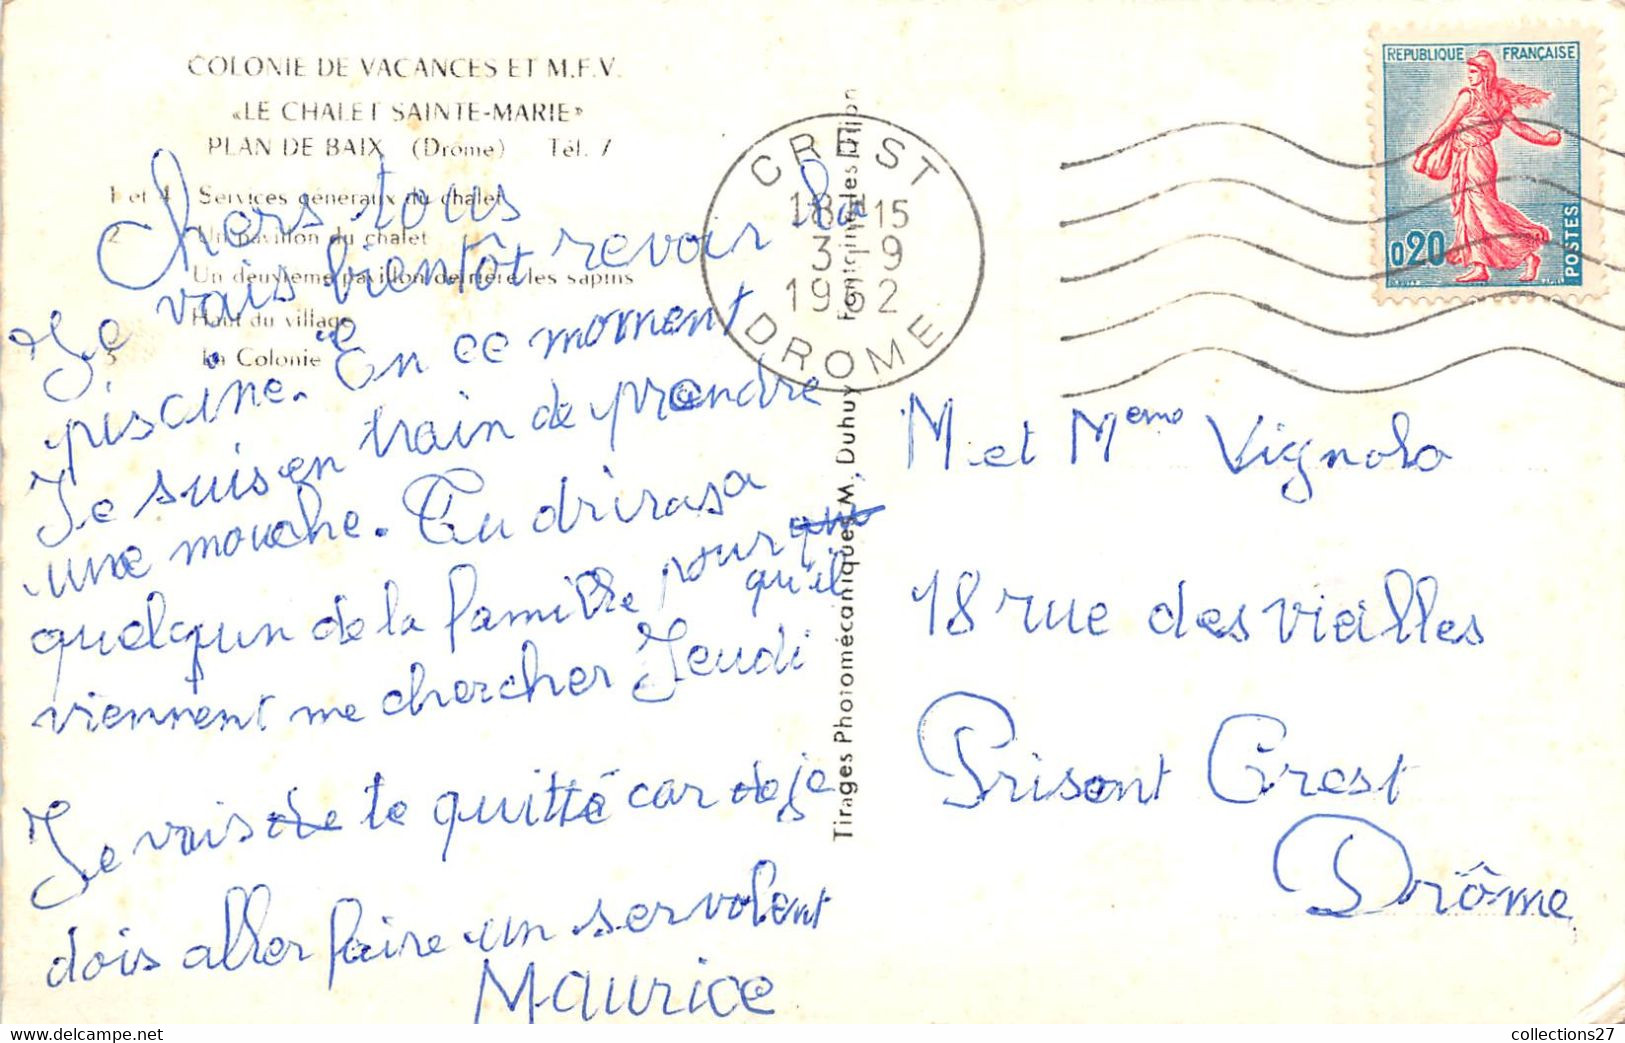 COLONIE DE VACANCES ET M.F.V.
«LE CHALET SAINTE-MARIE»
PLAN DE BAIX (Drome) Tél. 7
1 et 4 Services généraux du chalet
2 Un pavillon du chalet
Un deuxième pavillon derrière les sapins
Haut du village
5 La Colonie
Chers tous
Je vais bientôt revoir la
piscine. En ce moment
Je suis en train de prendre
une mouche. Tu driras a
quelqun de la famille pour qui
qu'il
viennent me chercher Jeudi
Je vais de te quitté car de je
dois aller faire un servolent
Maurice
Tirages Photomécaniques M. Duhuy
CREST
18H15
3-9
1962
DROME
REPUBLIQUE FRANÇAISE
0,20
POSTES
M et Meme Vignolo
18 rue des vieilles
Prisont Crest
Drôme
collections27